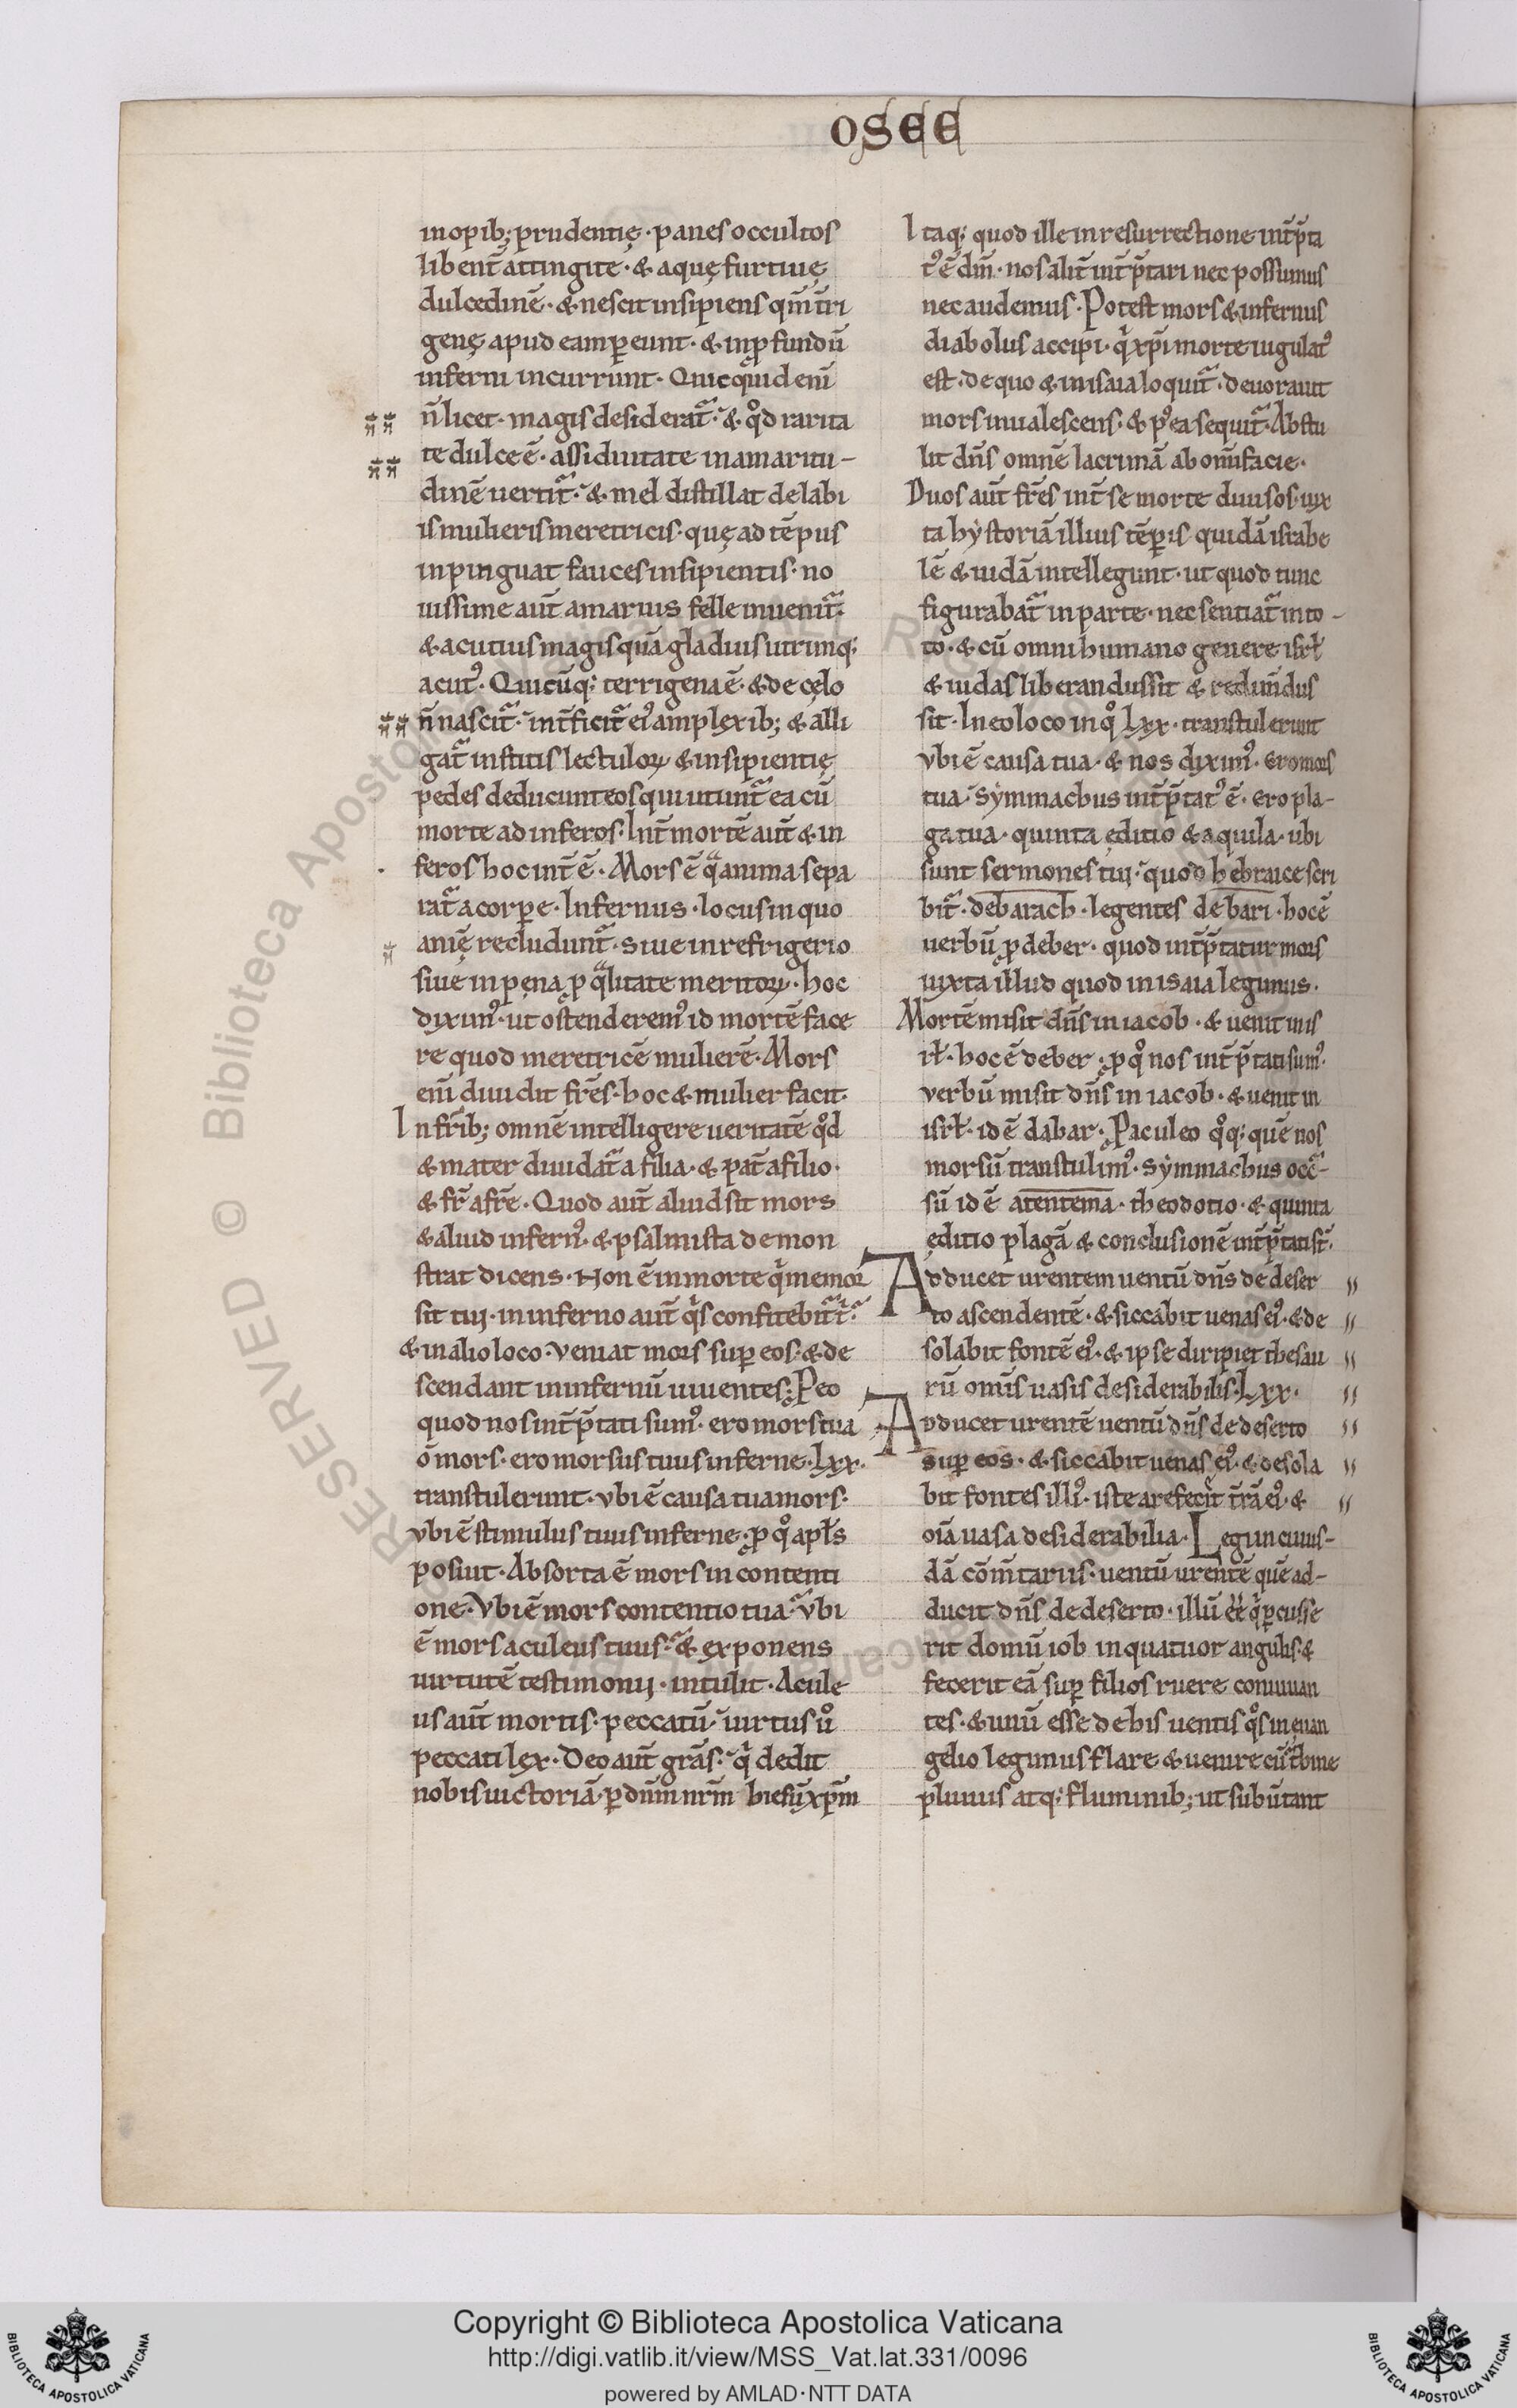 OSEE
inopib; prudentię · panes occultos
libent̄ attingite · & aquę furtiuę
dulcedinē · & nescit insipiens qm̄ t̄ri
genę apud eam ꝑeunt · & inꝓfundū
inferni incurrunt · Quicquid eni̅
n̄ licet · magis desiderat᷑ · & qd̊ rarita
te dulce ē · assiduitate in amaritu-
dinē uertit᷑ · & mel distillat de labi
is mulieris meretricis · quę ad tēpus
inpinguat fauces insipientis · no
uissime aut̄ amarius felle inuenit᷑ ·
& acutius magis quā gladius utrinq;
acutꝰ · Quicūq; terrigena ē · & de cęlo
n̄ nascit᷑ · int̄ficit᷑ eiꝰ amplexib; & alli
gat᷑ institis lectuloꝝ & insipientię
pedes deducunt eos qui utunt᷑ ea cū
morte ad inferos · Int̄ mortē aut̄ & in
feros hoc int̄ ē · Mors ē qͣ anima sepa
rat᷑ a corꝑe · Infernus · locus in quo
anię recludunt᷑ · siue in refrigerio
siue in pęna ꝓ qͣlitate meritoꝝ · hoc
diximꝰ · ut ostenderemꝰ id mortē face
re quod meretricē mulierē · Mors
eni̅ diuidit fr̄es · hoc & mulier facit ·
In fr̄ib; omnē intelligere ueritatē qd̊
& mater diuidat᷑ a filia · & pat̄ a filio ·
& fr̄ a fr̄e · Quod aut̄ aliud sit mors
& aliud infernꝰ · & psalmista demon
strat dicens · Non ē in morte qͥ memor
sit tui · in inferno aut̄ qͥs confitebit᷑ t᷑ ·
& in alio loco · Veniat mors suꝑ eos · & de
scendant in infernū uiuentes · Ꝓ eo
quod nos int̄p̄tati sumꝰ · ero mors tua
ō mors · ero morsus tuus inferne · Lxx ·
transtulerunt · vbi ē causa tua mors ·
vbi ē stimulus tuus inferne · ꝓ qͦ apl̄s
posuit · Absorta ē mors in contenti
one · Vbi ē mors contentio tua · vbi
ē mors aculeus tuus · & exponens
uirtutē testimonij · intulit · Acule
us aut̄ mortis · peccatū · uirtus uͦ
peccati lex · Deo aut̄ grās · qͥ dedit
nobis uictoriā · ꝑ dn̄m nr̄m hiesū xp̄m
Itaq; quod ille in resurrectione int̄p̄ta
tꝰ ē dn̄i · nos alit̄ int̄p̄tari nec possumus
nec audemus · Potest mors & infernus
diabolus accipi · qͥ xp̄i morte iugulatꝰ
est · de quo & in isaia loquit᷑ · deuorauit
mors inualescens · & pꝰ ea sequit᷑ · Abstu
lit dn̄s omnē lacrimā ab omi̅ facie ·
Duos aut̄ fr̄es int̄ se morte diuisos · iux
ta hẏstoriā illius tēꝑis quidā israhe
lē & iudā intellegunt · ut quod tunc
figurabat᷑ in parte · nec sentiat᷑ in to-
to · & cū omni humano genere isrł
& iudas liberandus sit & redim̄dus
sit · In eo loco in qͦ Lxx · transtulerunt
vbi ē causa tua · & nos diximꝰ · ero mors
tua · sẏmmachus int̄p̄tatꝰ ē · ero pla-
ga tua · quinta editio & aquila · ubi
sunt sermones tui · quod hebraice scri
bit᷑ · debarach · legentes debari · hoc ē
uerbū ꝓ deber · quod int̄p̄tatur mors
iuxta illud quod in isaia legimus ·
Mortē misit dn̄s in iacob · & uenit in is
rł · hoc ē deber · ꝓ qͦ nos int̄p̄tati sumꝰ ·
verbū misit dn̄s in iacob · & uenit in
isrł · id ē dabar · Ꝓ aculeo qͦq; quē nos
morsū transtulimꝰ · sẏmmachus occ̄-
sū id ē atentema · theodotio · & quinta
editio plagā & conclusionē int̄p̄tati st̄ ·
Adducet urentem uentū dn̄s de deser
to ascendentē · & siccabit uenas eiꝰ · & de
solabit fontē eiꝰ · & ipse diripiet thesau
rū omi̅s uasis desiderabilis · Lxx ·
Adducet urentē uentū dn̄s de deserto
suꝑ eos · & siccabit uenas eiꝰ · & desola
bit fontes illiꝰ · iste arefecit t̄rā eiꝰ · &
oi̅a uasa desiderabilia · Legi in cuius-
dā com̄tariis · uentū urentē quē ad-
ducit dn̄s de deserto · illū ēē qͥ ꝑcusse
rit domū iob in quatuor angulis · &
fecerit eā suꝑ filios ruere conuiuan
tes · & unū esse de his uentis qͦs in euan
gelio legimus flare & uenire cū t᷑bine
pluuiis atq; fluminib; ut subūtant
Copyright © Biblioteca Apostolica Vaticana
http://digi.vatlib.it/view/MSS_Vat.lat.331/0096
powered by AMLAD·NTT DATA
BIBLIOTECA APOSTOLICA VATICANA
BIBLIOTECA APOSTOLICA VATICANA